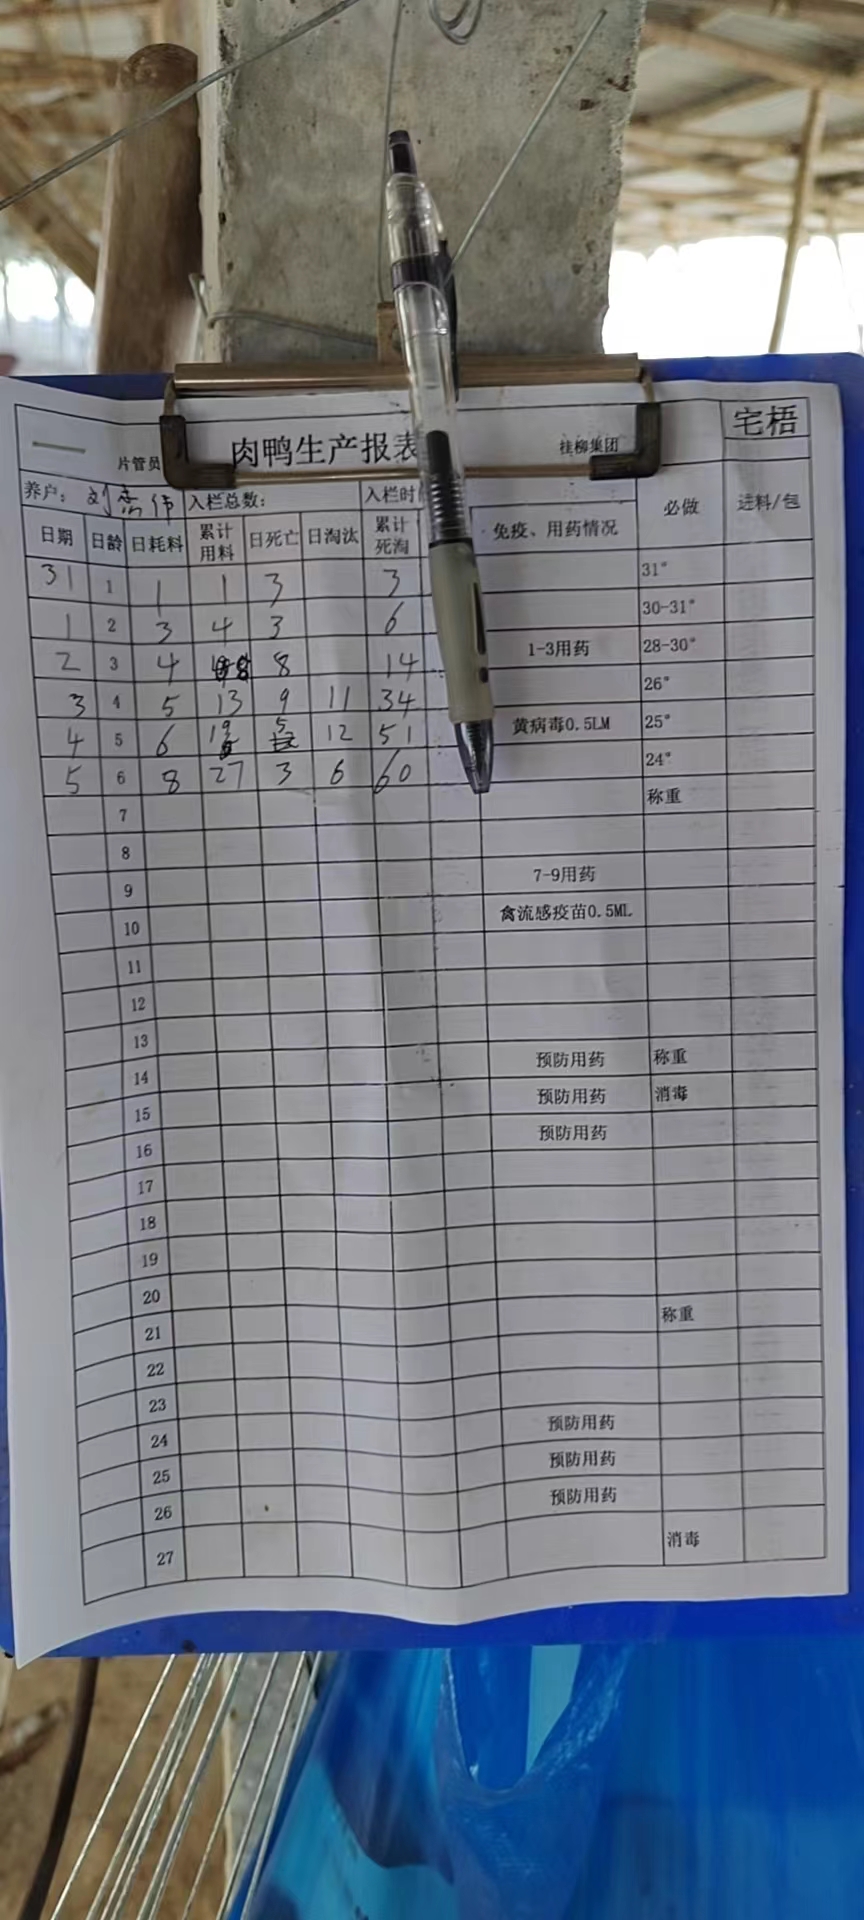 片管员 肉鸭生产报表 桂柳集团 宅梧
养户: 刘 伟 入栏总数: 入栏时
日期 日龄 日耗料 累计用料 日死亡 日淘汰 累计死淘 免疫、用药情况 必做 进料/包
31 1 1 1 3 3 31°
1 2 3 4 3 6 30-31°
2 3 4 8 8 14 1-3用药 28-30°
3 4 5 13 9 11 34 26°
4 5 6 19 5 12 51 黄病毒0.5LM 25°
5 6 8 27 3 6 60 24°
7 称重
8
9 7-9用药
10 禽流感疫苗0.5ML
11
12
13
14 预防用药 称重
15 预防用药 消毒
16 预防用药
17
18
19
20
21 称重
22
23
24 预防用药
25 预防用药
26 预防用药
27 消毒